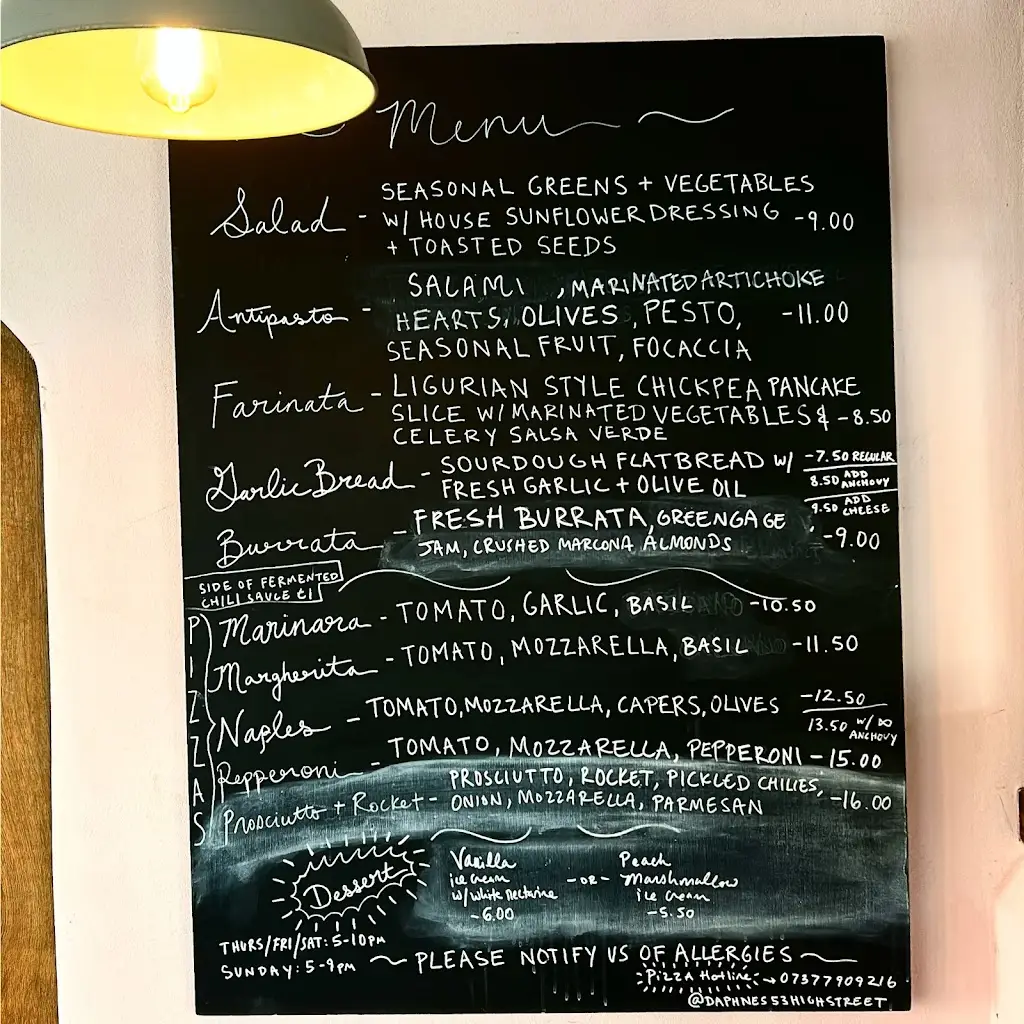 Menu
Salad - SEASONAL GREENS + VEGETABLES
W/ HOUSE SUNFLOWER DRESSING -9.00
+ TOASTED SEEDS
Antipasto - SALAMI , MARINATED ARTICHOKE
HEARTS, OLIVES , PESTO, -11.00
SEASONAL FRUIT, FOCACCIA
Farinata - LIGURIAN STYLE CHICKPEA PANCAKE
SLICE W/ MARINATED VEGETABLES & -8.50
CELERY SALSA VERDE
Garlic Bread - SOURDOUGH FLATBREAD W/ -7.50 REGULAR
FRESH GARLIC + OLIVE OIL 8.50 ADD ANCHOVY
9.50 ADD CHEESE
Burrata - FRESH BURRATA, GREENGAGE
JAM, CRUSHED MARCONA ALMONDS -9.00
SIDE OF FERMENTED
CHILI SAUCE £1
PIZZAS
Marinara - TOMATO, GARLIC, BASIL -10.50
Margherita - TOMATO, MOZZARELLA, BASIL -11.50
Naples - TOMATO, MOZZARELLA, CAPERS, OLIVES -12.50
13.50 W/ ANCHOVY
Pepperoni - TOMATO, MOZZARELLA, PEPPERONI - 15.00
Prosciutto + Rocket - PROSCIUTTO, ROCKET, PICKLED CHILIES,
ONION, MOZZARELLA, PARMESAN -16.00
Dessert
Vanilla
ice cream
w/ white Nectarine
-6.00
-OR-
Peach
Marshmallow
ice cream
-5.50
THURS/FRI/SAT: 5-10PM
SUNDAY: 5-9PM
PLEASE NOTIFY US OF ALLERGIES
Pizza Hotline → 07377909216
@DAPHNES53HIGHSTREET